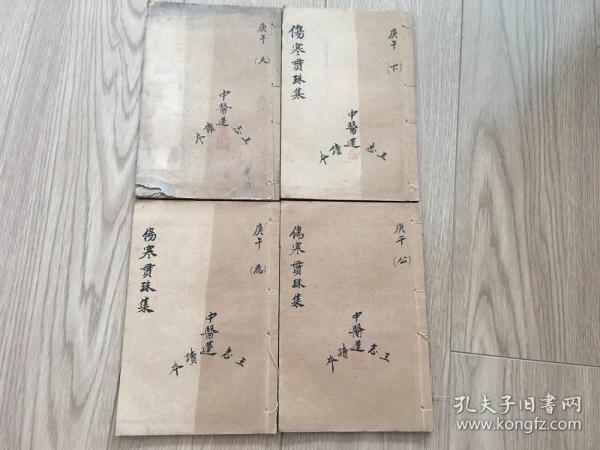 庚午
(天)
中醫
王志
本
傷寒貫珠集
庚午
(下)
中醫
王志
讀本
傷寒貫珠集
庚午
(為)
中醫
王志
讀本
傷寒貫珠集
庚午
(公)
中醫
王志
讀本
孔夫子旧书网
www.kongfz.com